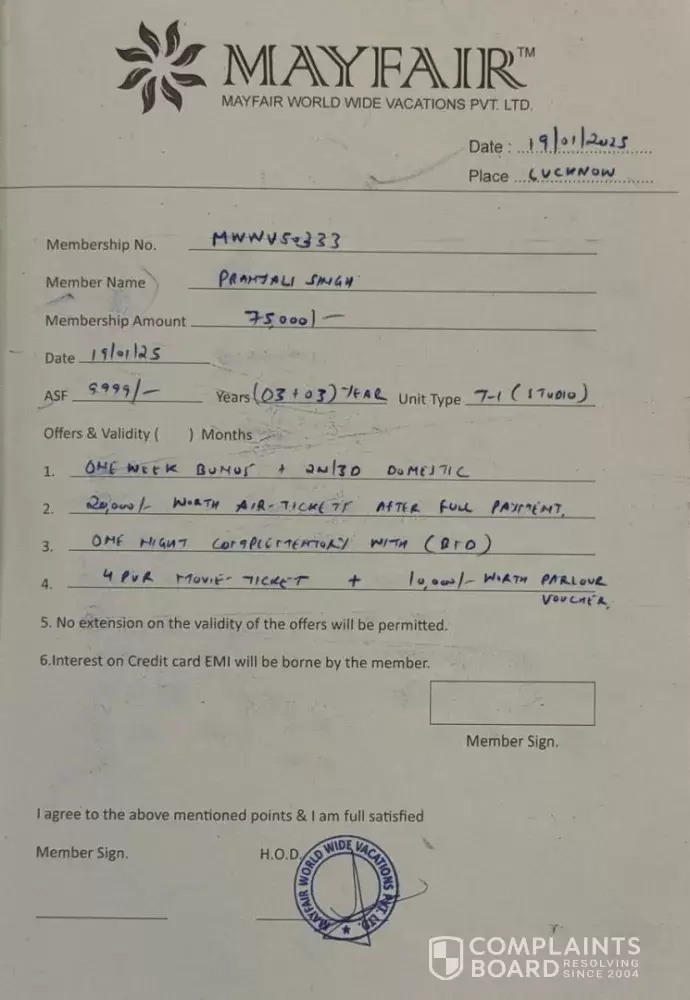 MAYFAIR™
MAYFAIR WORLD WIDE VACATIONS PVT. LTD.
Date : 19/01/2025
Place LUCKNOW
Membership No. MWWV50333
Member Name PRANJALI SINGH
Membership Amount 75,000/-
Date 19/01/25
ASF 9999/- Years (03+03) YEAR Unit Type T-1 (STUDIO)
Offers & Validity ( ) Months
1. ONE WEEK BONUS + 2N/3D DOMESTIC
2. 20,000/- WORTH AIR-TICKETS AFTER FULL PAYMENT.
3. ONE NIGHT COMPLEMENTORY WITH
4. 4 PVR MOVIE-TICKET + 10,000/- WORTH PARLOUR
VOUCHER.
5. No extension on the validity of the offers will be permitted.
6.Interest on Credit card EMI will be borne by the member.
Member Sign.
I agree to the above mentioned points & I am full satisfied
Member Sign. H.O.D.
MAYFAIR WORLD WIDE VACATIONS PVT. LTD.
COMPLAINTS
BOARD RESOLVING
SINCE 2004